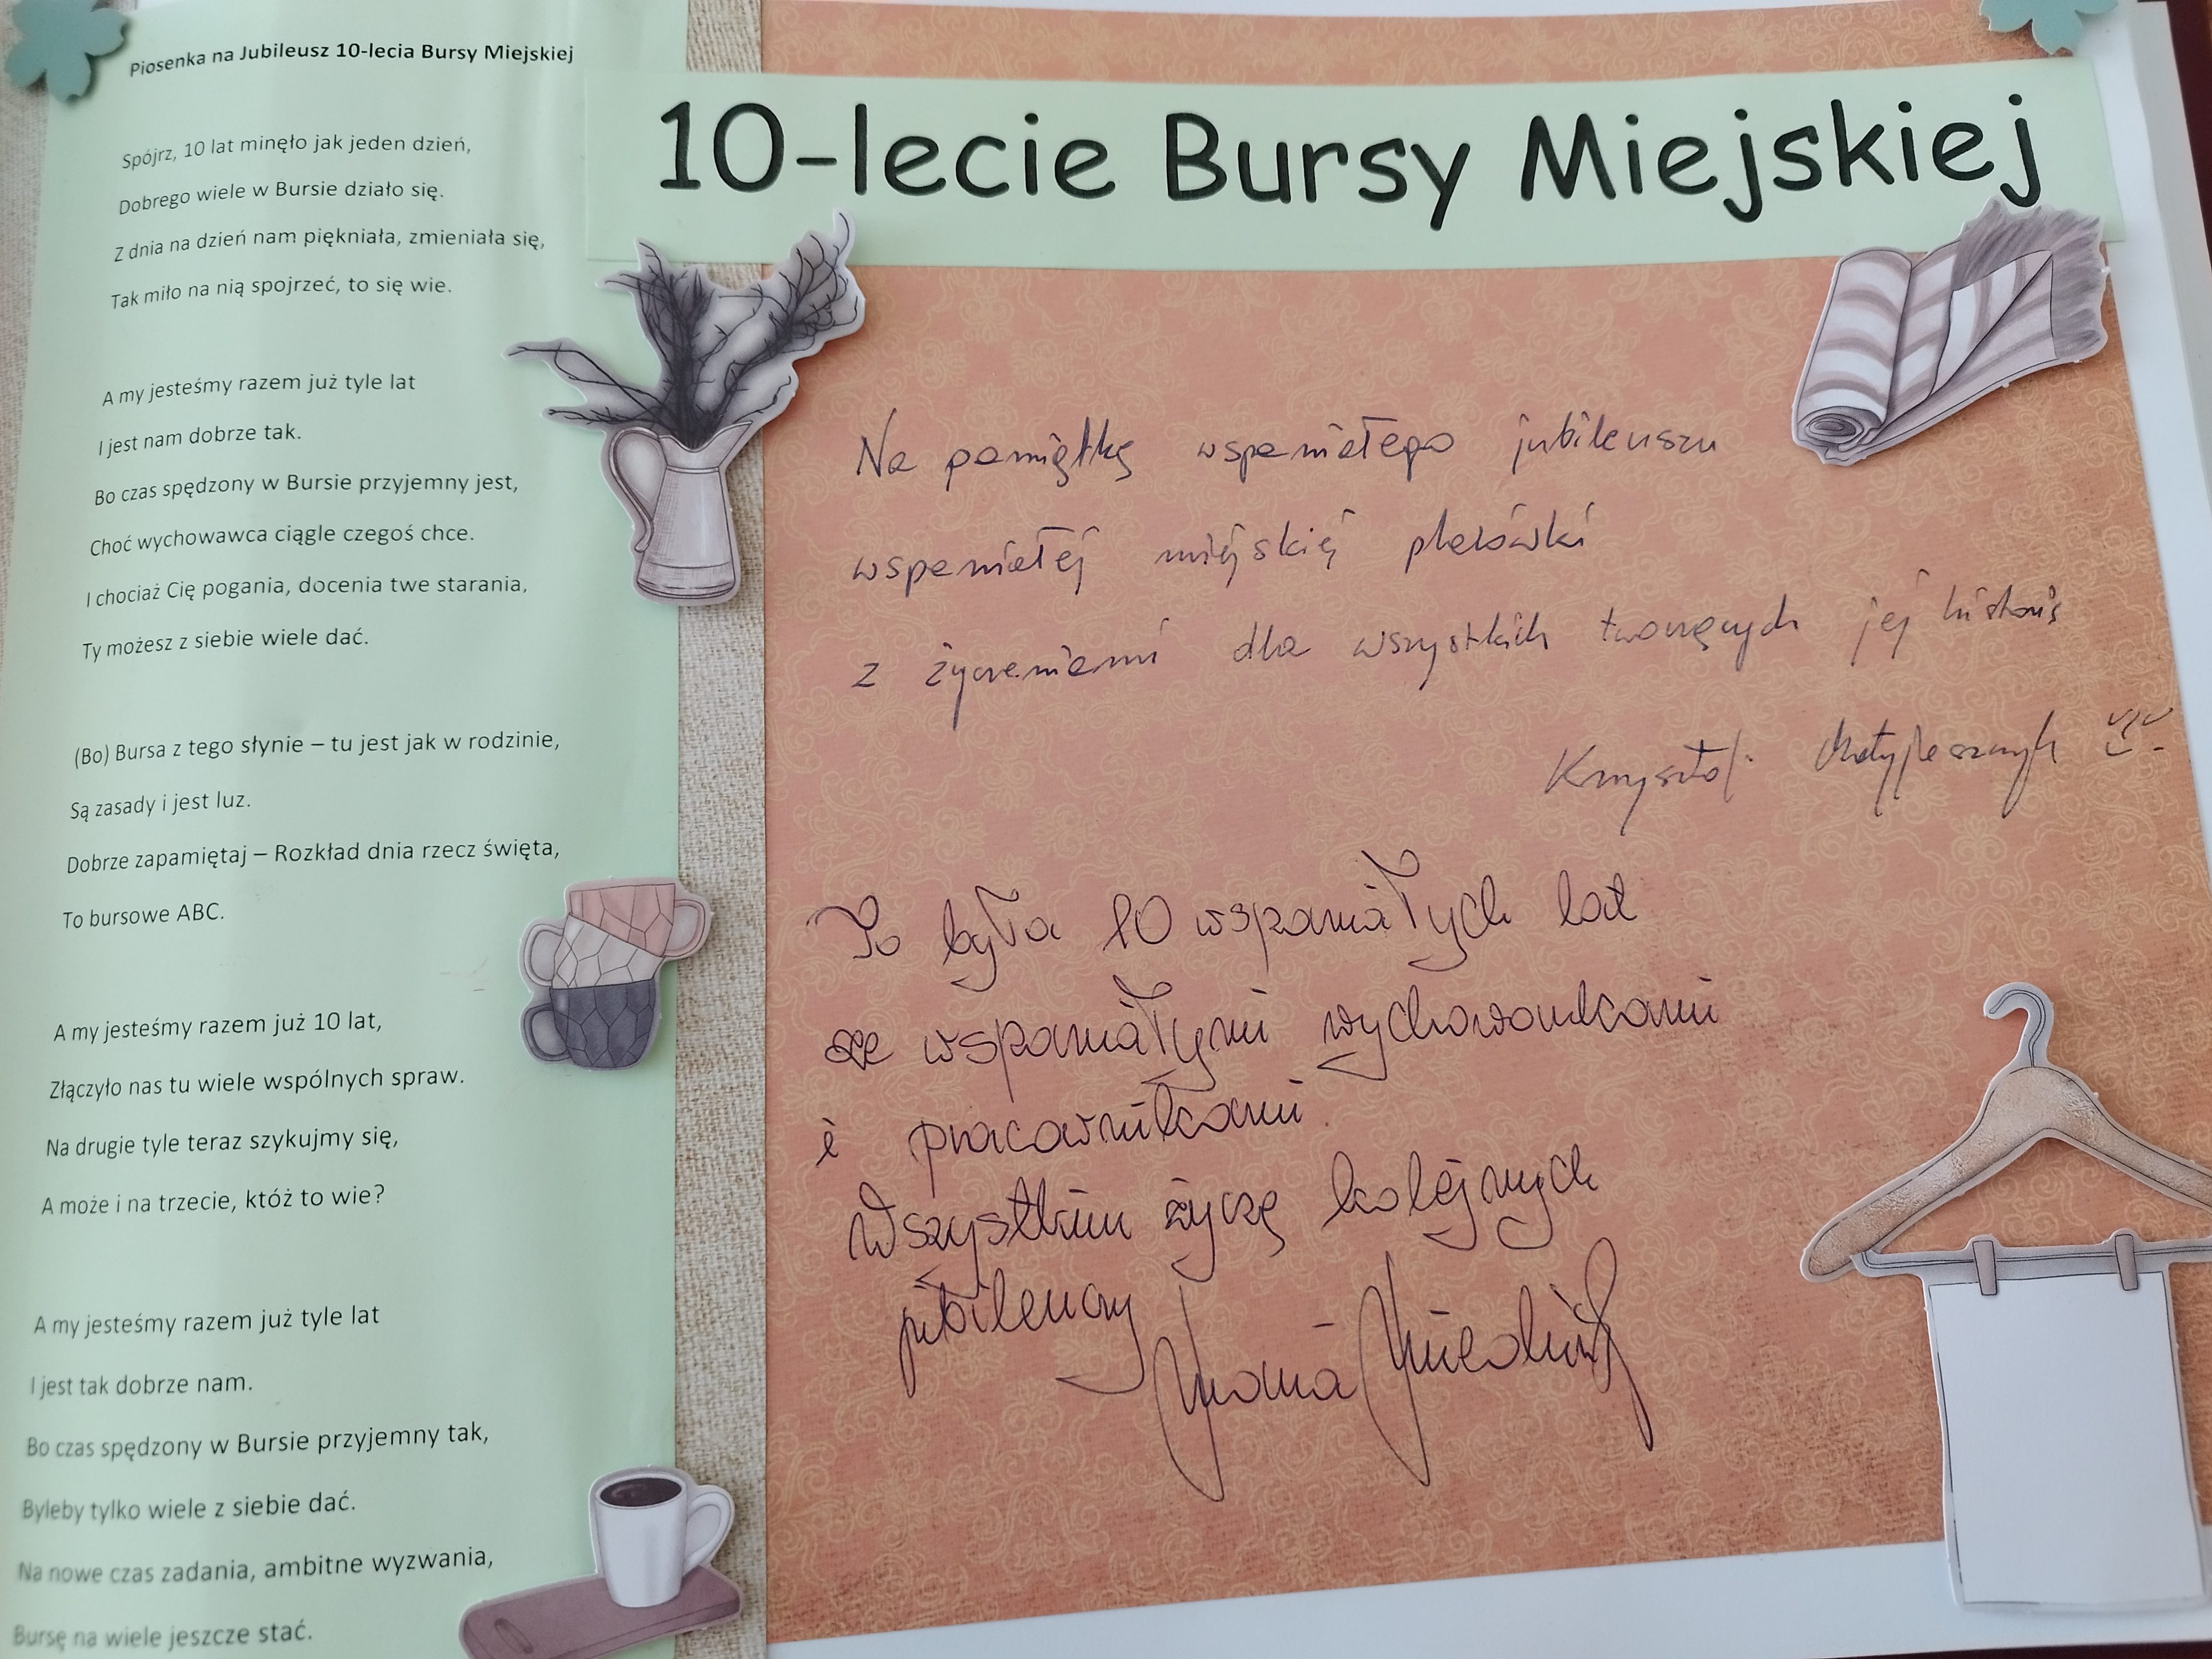 Piosenka na Jubileusz 10-lecia Bursy Miejskiej
Spójrz, 10 lat minęło jak jeden dzień,
Dobrego wiele w Bursie działo się.
Z dnia na dzień nam piękniała, zmieniała się,
Tak miło na nią spojrzeć, to się wie.
A my jesteśmy razem już tyle lat
I jest nam dobrze tak.
Bo czas spędzony w Bursie przyjemny jest,
Choć wychowawca ciągle czegoś chce.
I chociaż Cię pogania, docenia twe starania,
Ty możesz z siebie wiele dać.
(Bo) Bursa z tego słynie – tu jest jak w rodzinie,
Są zasady i jest luz.
Dobrze zapamiętaj – Rozkład dnia rzecz święta,
To bursowe ABC.
A my jesteśmy razem już 10 lat,
Złączyło nas tu wiele wspólnych spraw.
Na drugie tyle teraz szykujmy się,
A może i na trzecie, któż to wie?
A my jesteśmy razem już tyle lat
I jest tak dobrze nam.
Bo czas spędzony w Bursie przyjemny tak,
Byleby tylko wiele z siebie dać.
Na nowe czas zadania, ambitne wyzwania,
Bursę na wiele jeszcze stać.
10-lecie Bursy Miejskiej
Na pamiątkę wspaniałego jubileuszu
wspaniałej miejskiej placówki
z życzeniami dla wszystkich tworzących jej historię
Krzysztof
To była 10 wspaniałych lat
ze wspaniałymi wychowankami
i pracownikami.
Wszystkim życzę kolejnych
jubileuszy